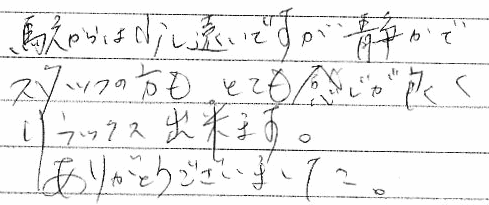 駅からは少し遠いですが静かで
スタッフの方もとても感じが良く
リラックス出来ます。
ありがとうございました。